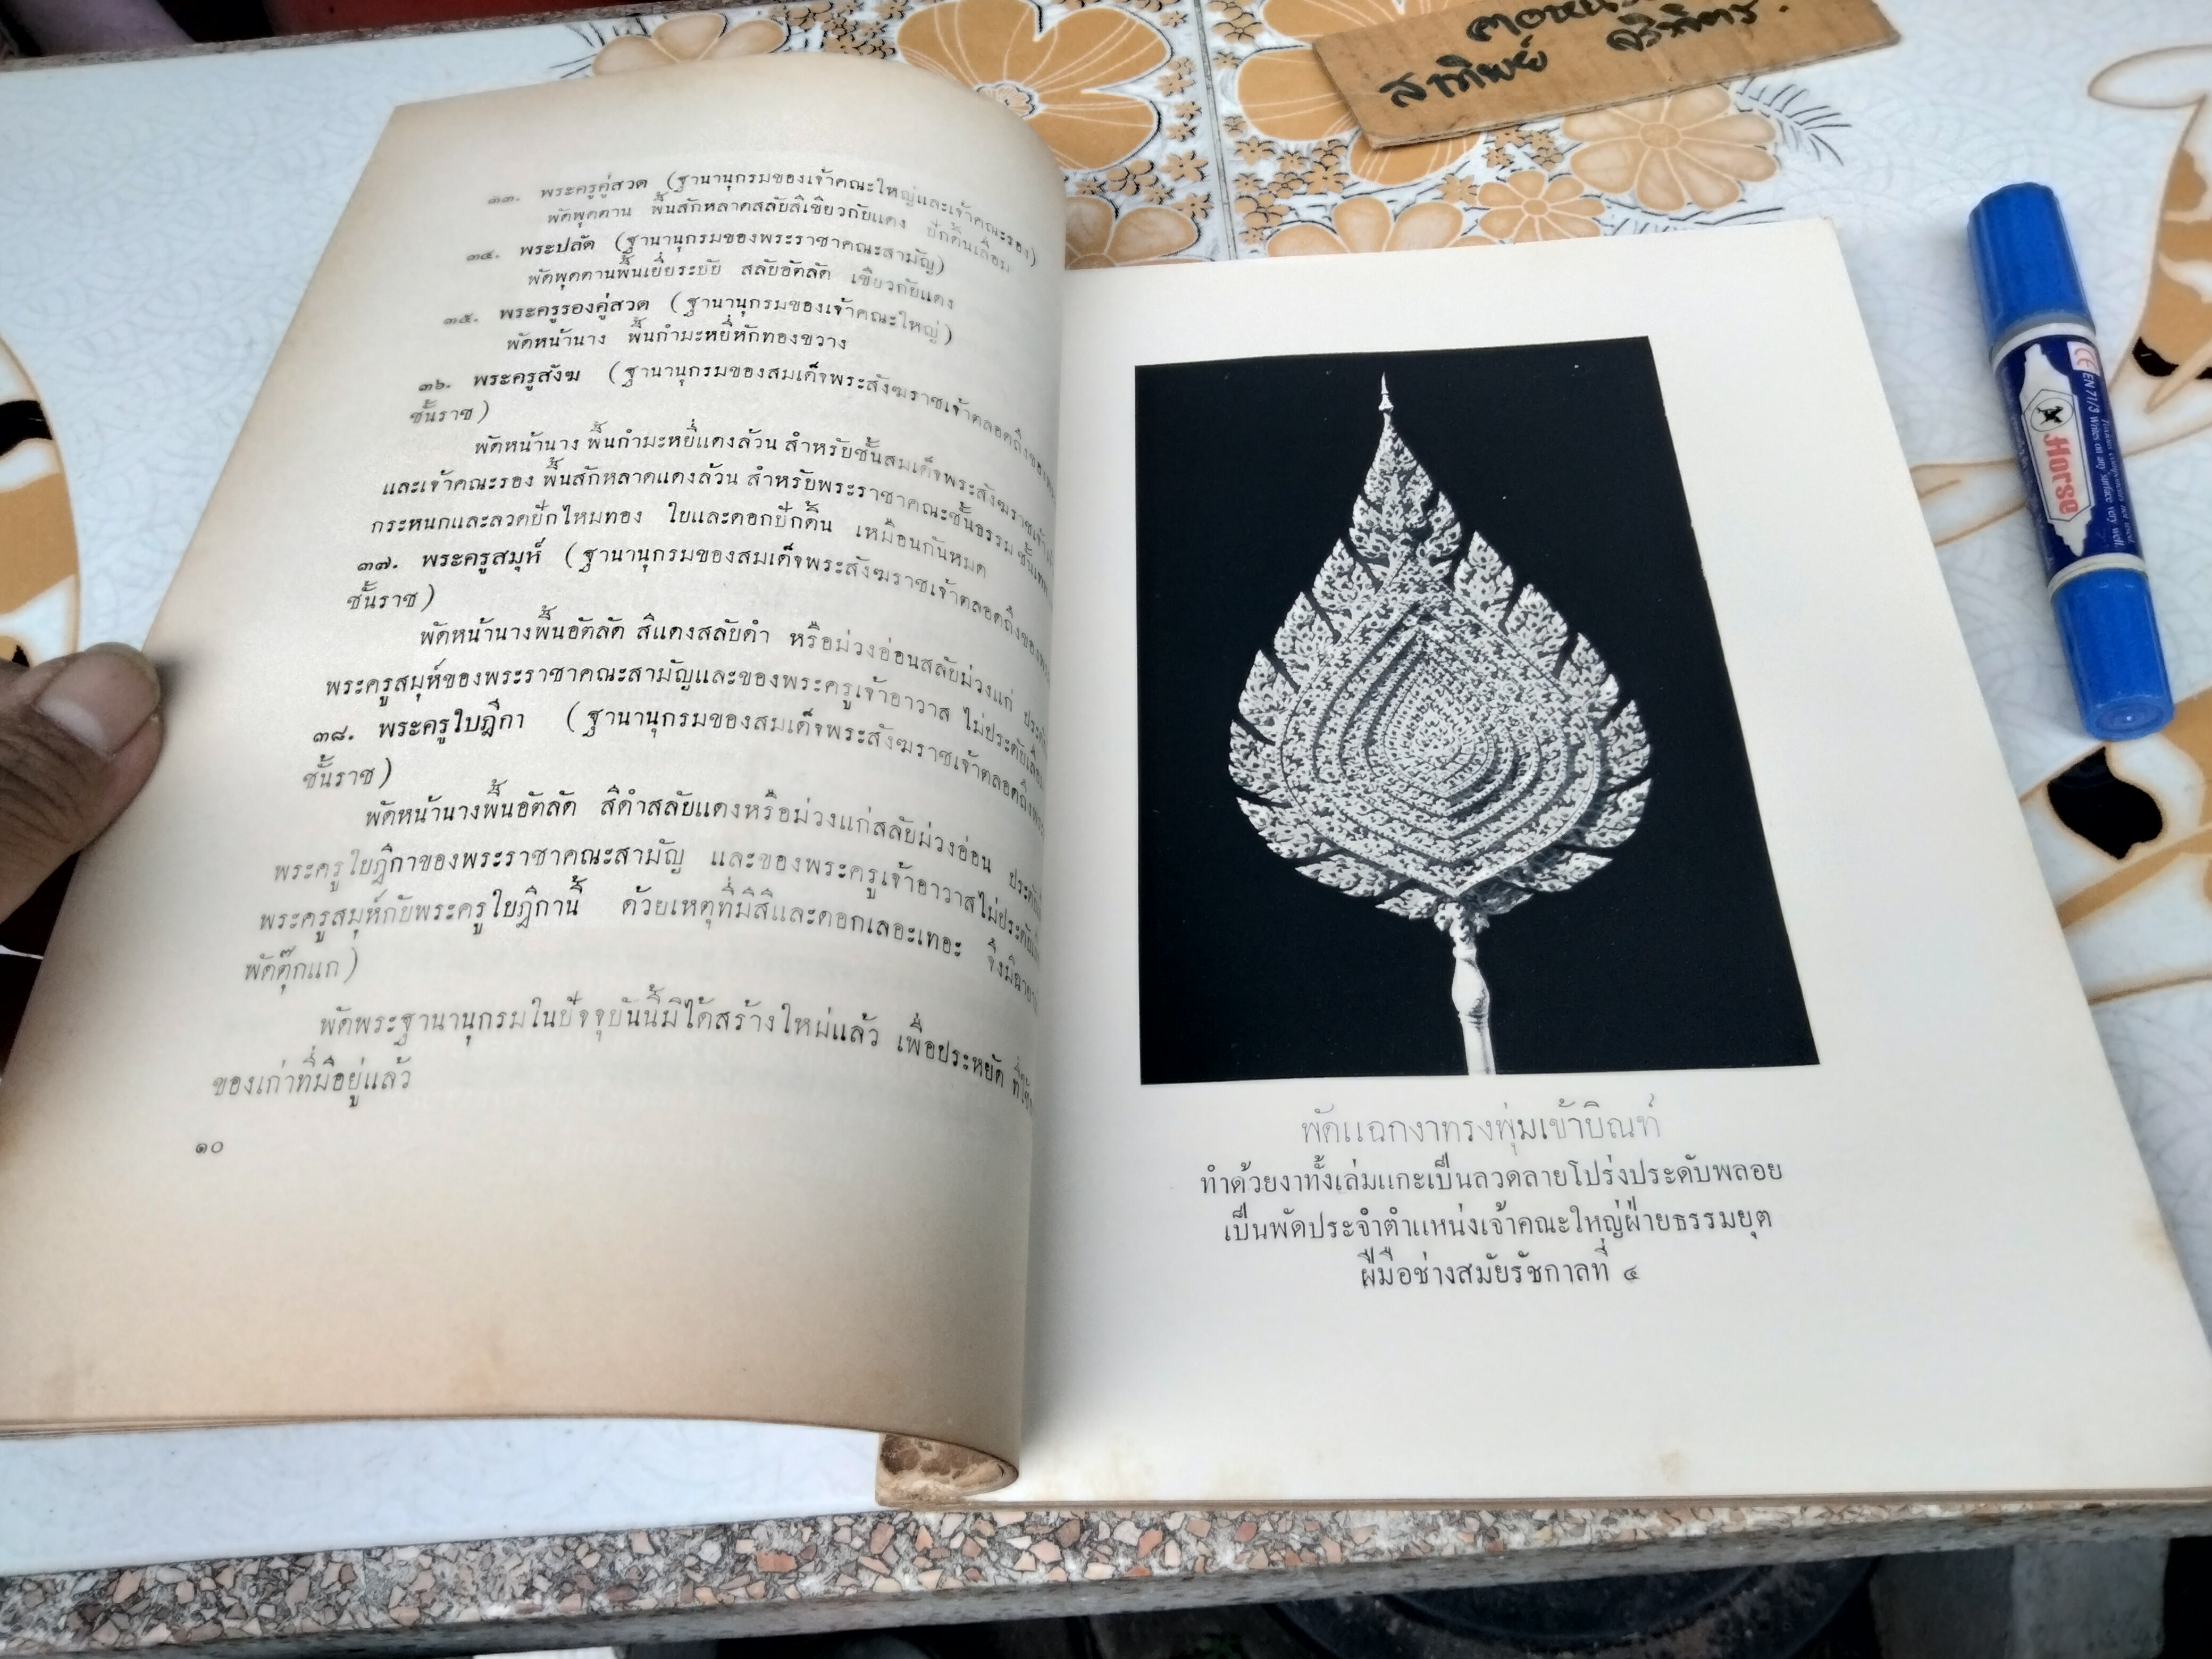 ๓๓. พระครูคู่สวด (ฐานานุกรมของเจ้าคณะใหญ่และเจ้าคณะรอง)
พัดพุดตาน พื้นสักหลาดสลับสีเขียวกับแดง ปักดิ้นเลื่อม
๓๔. พระปลัด (ฐานานุกรมของพระราชาคณะสามัญ)
พัดพุดตานพื้นเยียระบับ สลับอัตลัด เขียวกับแดง
๓๕. พระครูรองคู่สวด (ฐานานุกรมของเจ้าคณะใหญ่)
พัดหน้านาง พื้นกำมะหยี่หักทองขวาง
๓๖. พระครูสังฆ (ฐานานุกรมของสมเด็จพระสังฆราชเจ้าตลอดถึงของ
ชั้นราช)
พัดหน้านาง พื้นกำมะหยี่แดงล้วน สำหรับชั้นสมเด็จพระสังฆราชเจ้า
และเจ้าคณะรอง พื้นสักหลาดแดงล้วน สำหรับพระราชาคณะชั้นธรรม ชั้นเทพ
กระหนกและลวดปักไหมทอง ใบและดอกปักดิ้น เหมือนกันหมด
๓๗. พระครูสมุห์ (ฐานานุกรมของสมเด็จพระสังฆราชเจ้าตลอดถึงของ
ชั้นราช)
พัดหน้านางพื้นอัตลัด สีแดงสลับดำ หรือม่วงอ่อนสลับม่วงแก่
พระครูสมุห์ของพระราชาคณะสามัญและของพระครูเจ้าอาวาส ไม่ประดับเลื่อม
๓๘. พระครูใบฎีกา (ฐานานุกรมของสมเด็จพระสังฆราชเจ้าตลอดถึง
ชั้นราช)
พัดหน้านางพื้นอัตลัด สีดำสลับแดงหรือม่วงแก่สลับม่วงอ่อน
พระครูใบฎีกาของพระราชาคณะสามัญ และของพระครูเจ้าอาวาสไม่ประดับ
พระครูสมุห์กับพระครูใบฎีกานี้ ด้วยเหตุที่มีสีและดอกเลอะเทอะ จึงมี
พัดตุ๊กแก)
พัดพระฐานานุกรมในปัจจุบันนี้มิได้สร้างใหม่แล้ว เพื่อประหยัด
ของเก่าที่มีอยู่แล้ว
๑๐
พัดแฉกงาทรงพุ่มเข้าบิณฑ์
ทำด้วยงาทั้งเล่มแกะเป็นลวดลายโปร่งประดับพลอย
เป็นพัดประจำตำแหน่งเจ้าคณะใหญ่ฝ่ายธรรมยุต
ฝีมือช่างสมัยรัชกาลที่ ๔
สาทิพย์
Horse
EN 71/3